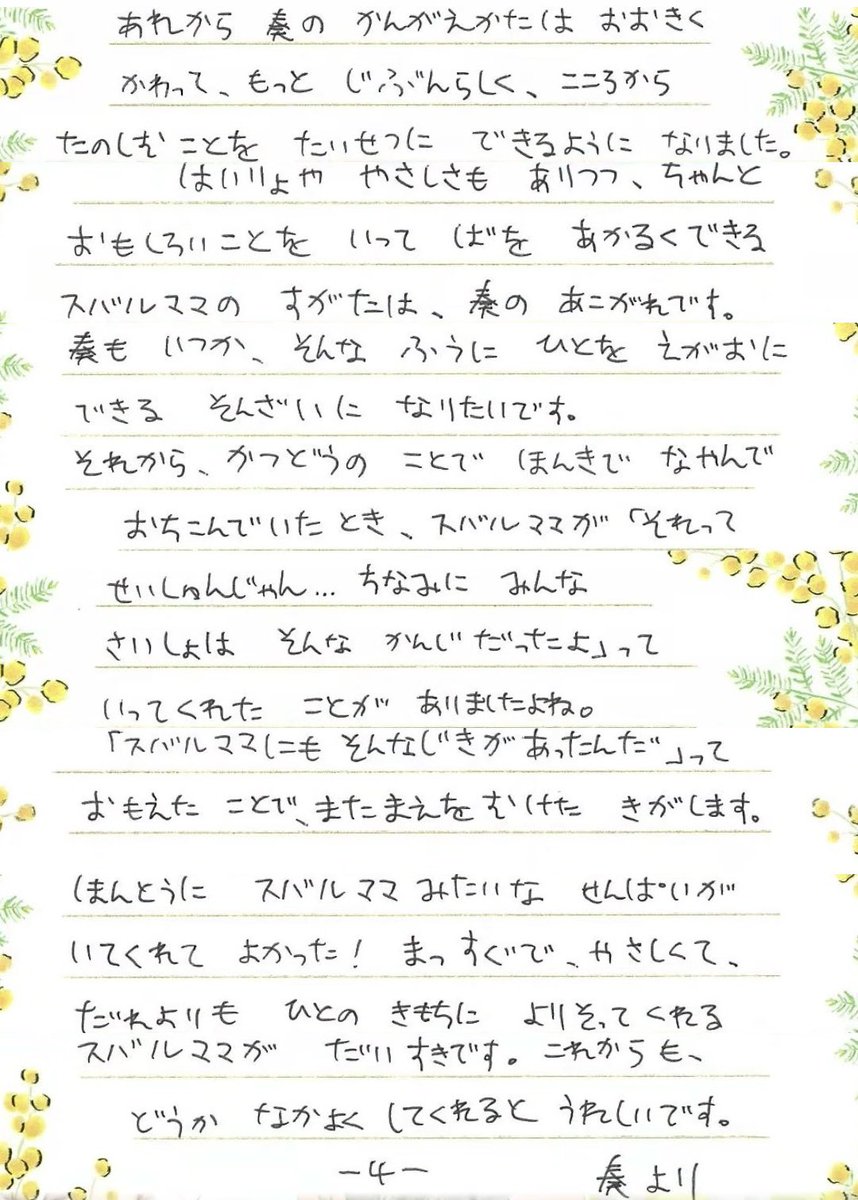 あれから 奏の かんがえかたは おおきく
かわって、もっと じぶんらしく、こころから
たのしむ ことを たいせつに できるように なりました。
はいりょや やさしさも ありつつ、ちゃんと
おもしろいことを いって ばを あかるくできる
スバルママの すがたは、奏の あこがれです。
奏も いつか、そんな ふうに ひとを えがおに
できる そんざいに なりたいです。
それから、かつどうの ことで ほんきで なやんで
おちこんでいた とき、スバルママが「それって
せいしゅんじゃん… ちなみに みんな
さいしょは そんな かんじだったよ」って
いってくれた ことが ありましたよね。
「スバルママにも そんなじきが あったんだ」って
おもえた ことで、またまえを むけた きがします。
ほんとうに スバルママ みたいな せんぱいが
いてくれて よかった! まっすぐで、やさしくて、
だれよりも ひとの きもちに よりそって くれる
スバルママが だいすきです。これからも、
どうか なかよく してくれると うれしいです。
-4- 奏より